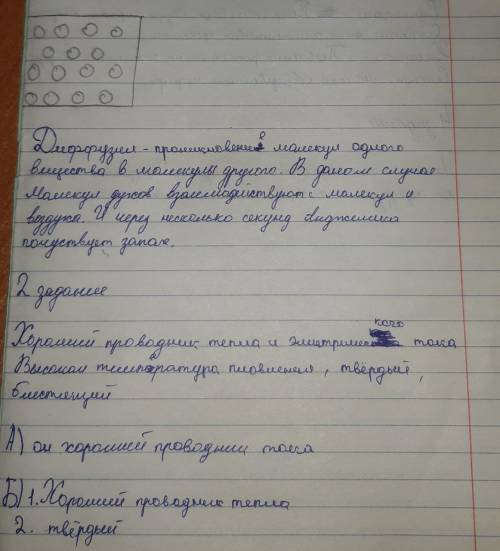 Диффузия - проникновение молекул одного
вещества в молекулы другого. В даном случае
Малекул духов взаемодействуют с малекул и
воздуха. И через несколько секунд
почуствует запах.
2 задание
Хороший проводник тепла и электрического тока
Высокая температура плавления, твёрдый,
блестящий
А) он хороший проводник тока
Б) 1. Хороший проводник тепла
2. твёрдый